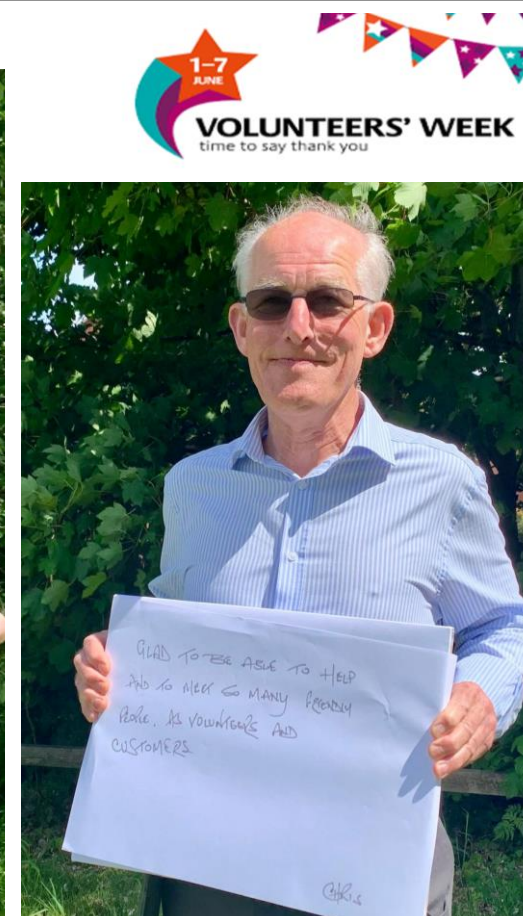 1–7
JUNE
VOLUNTEERS' WEEK
time to say thank you
GLAD TO BE ABLE TO HELP
AND TO MEET SO MANY FRIENDLY
PEOPLE, AS VOLUNTEERS AND
CUSTOMERS
CHRIS